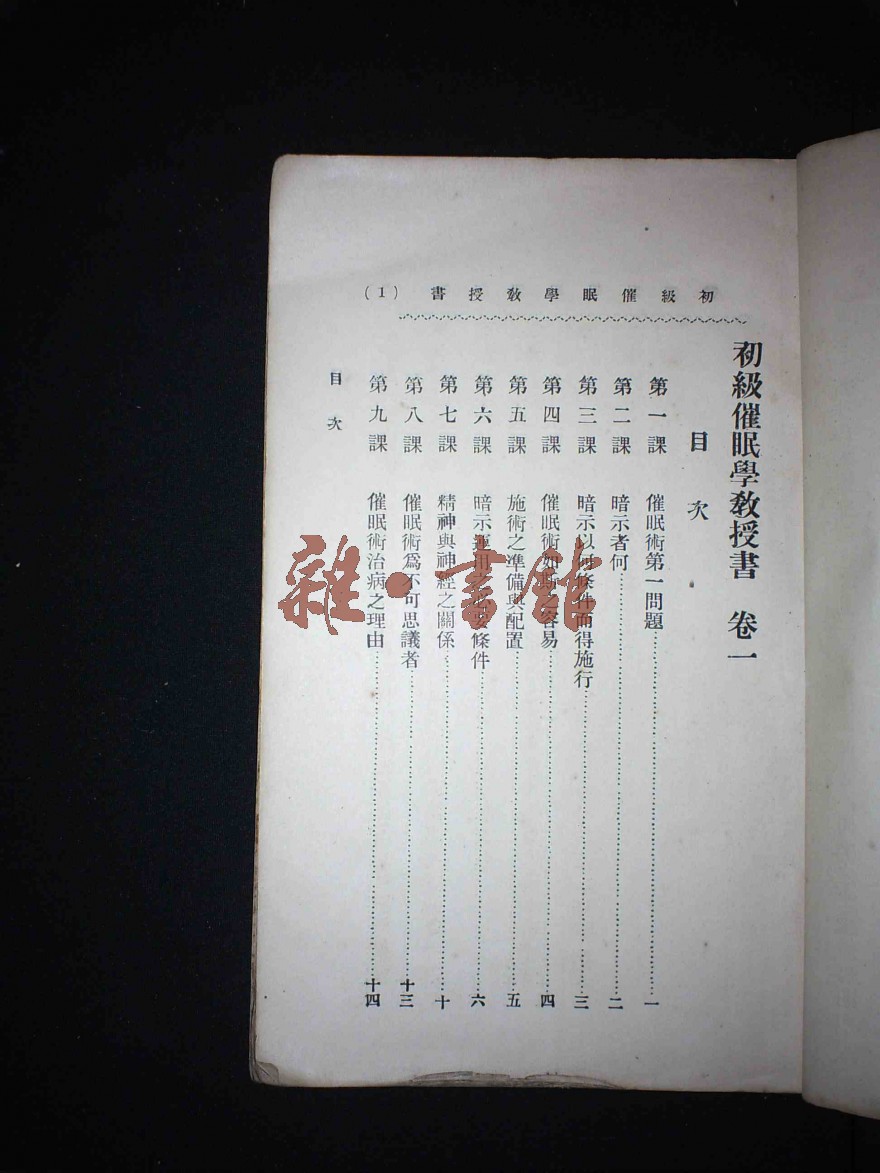 初級催眠學教授書 (1)
初級催眠學教授書 卷一
目次
第一課 催眠術第一問題……一
第二課 暗示者何……二
第三課 暗示以何條件而得施行……三
第四課 催眠術如斯之容易……四
第五課 施術之準備與配置……五
第六課 暗示運用之必要條件……六
第七課 精神與神經之關係……十
第八課 催眠術爲不可思議者……十三
第九課 催眠術治病之理由……十四
目次
雜·書館